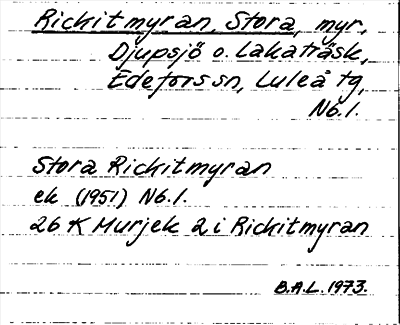 Rickitmyran, Stora, myr,
Djupsjö o. Lakaträsk,
Edefors sn, Luleå tg,
Nb.l.
Stora Rickitmyran
ek (1951) Nb.l.
26 K Murjek 2 i Rickitmyran
B.A.L. 1973.